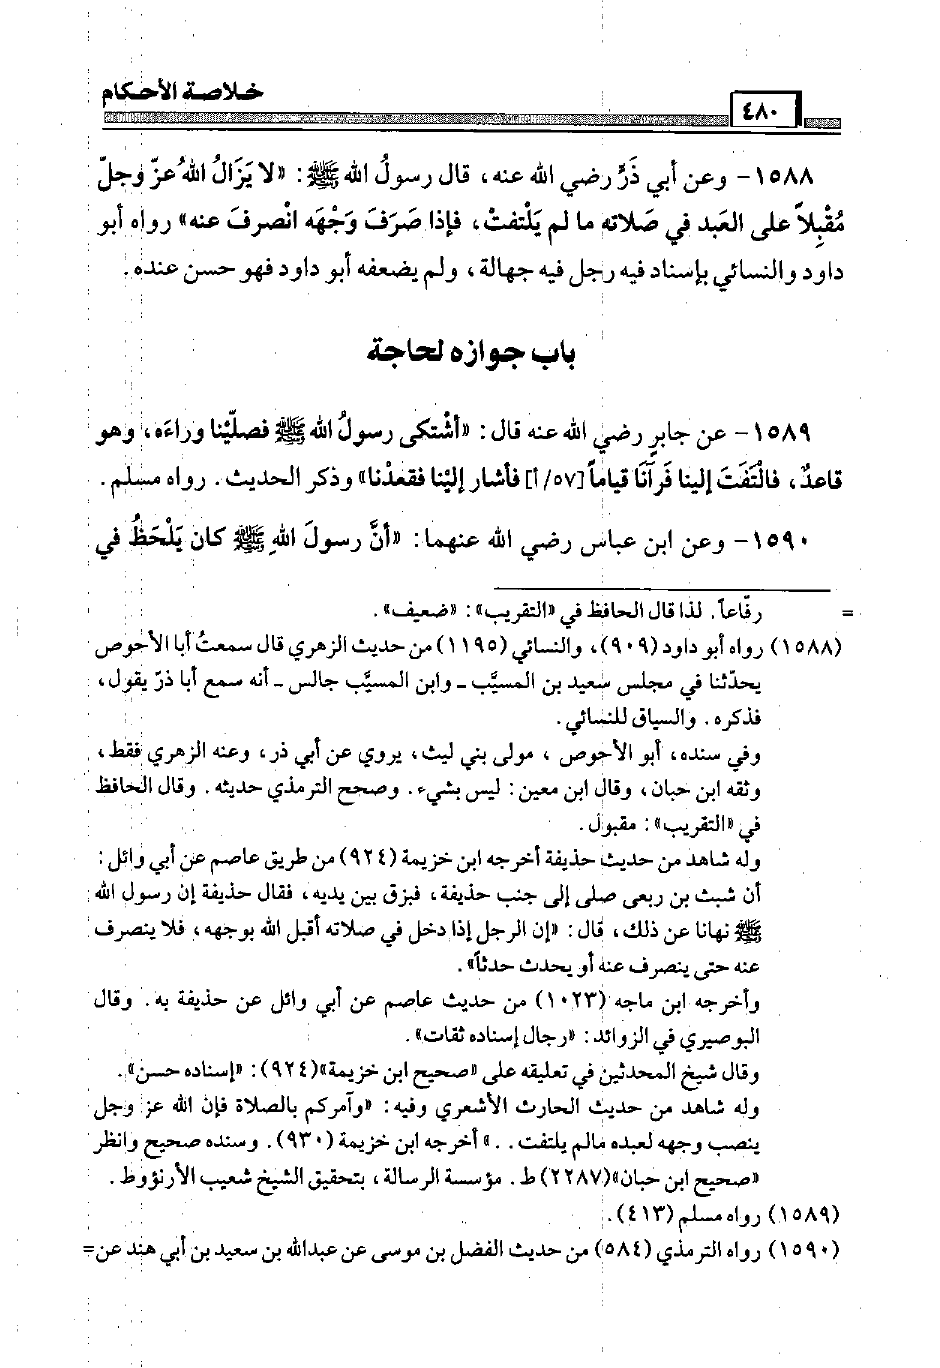 خلاصة الأحكام
٤٨٠
١٥٨٨ – وعن أبي ذَرٍّ رضي الله عنه، قال رسولُ الله ﷺ: «لا يَزَالُ اللهُ عزّ وجلّ
مُقْبِلاً على العَبد في صَلاته ما لم يَلْتفتْ، فإذا صَرَفَ وَجْهَه انْصرفَ عنه» رواه أبو
داود والنسائي بإسناد فيه رجل فيه جهالة، ولم يضعفه أبو داود فهو حسن عنده.
باب جوازه لحاجة
١٥٨٩ – عن جابرٍ رضي الله عنه قال: «أشْتكى رسولُ الله ﷺ فصلّيْنا وراءَه، وهو
قاعدٌ، فالْتَفَتَ إلينا فَرآنَا قياماً [٥٧/أ] فأشار إليْنا فقعدْنا» وذكر الحديث. رواه مسلم.
١٥٩٠ – وعن ابن عباس رضي الله عنهما: «أنَّ رسولَ اللهِ ﷺ كان يَلْحَظُ في
= رفّاعاً. لذا قال الحافظ في «التقريب»: «ضعيف».
(١٥٨٨) رواه أبو داود (٩٠٩)، والنسائي (١١٩٥) من حديث الزهري قال سمعتُ أبا الأحوص
يحدّثنا في مجلس سعيد بن المسيَّب ـ وابن المسيَّب جالس ـ أنه سمع أبا ذرّ يقول،
فذكره. والسياق للنسائي.
وفي سنده، أبو الأحوص، مولى بني ليث، يروي عن أبي ذر، وعنه الزهري فقط،
وثقه ابن حبان، وقال ابن معين: ليس بشيء. وصحح الترمذي حديثه. وقال الحافظ
في «التقريب»: مقبول.
وله شاهد من حديث حذيفة أخرجه ابن خزيمة (٩٢٤) من طريق عاصم عن أبي وائل:
أن شبث بن ربعى صلى إلى جنب حذيفة، فبزق بين يديه، فقال حذيفة إن رسول الله
ﷺ نهانا عن ذلك، قال: «إن الرجل إذا دخل في صلاته أقبل الله بوجهه، فلا ينصرف
عنه حتى ينصرف عنه أو يحدث حدثاً».
وأخرجه ابن ماجه (١٠٢٣) من حديث عاصم عن أبي وائل عن حذيفة به. وقال
البوصيري في الزوائد: «رجال إسناده ثقات».
وقال شيخ المحدثين في تعليقه على «صحيح ابن خزيمة»(٩٢٤): «إسناده حسن».
وله شاهد من حديث الحارث الأشعري وفيه: «وآمركم بالصلاة فإن الله عز وجل
ينصب وجهه لعبده مالم يلتفت. .» أخرجه ابن خزيمة (٩٣٠). وسنده صحيح وانظر
«صحيح ابن حبان»(٢٢٨٧) ط. مؤسسة الرسالة، بتحقيق الشيخ شعيب الأرنؤوط.
(١٥٨٩) رواه مسلم (٤١٣).
(١٥٩٠) رواه الترمذي (٥٨٤) من حديث الفضل بن موسى عن عبدالله بن سعيد بن أبي هند عن=